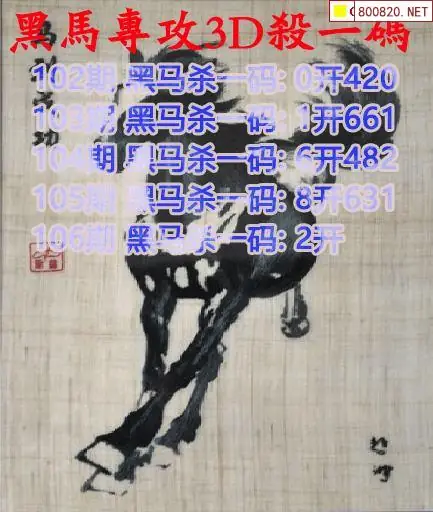 800820.NET
黑馬專攻3D殺一碼
102期 黑马杀一码: 0开420
103期 黑马杀一码: 1开661
104期 黑马杀一码: 6开482
105期 黑马杀一码: 8开631
106期 黑马杀一码: 2开
馬到成功